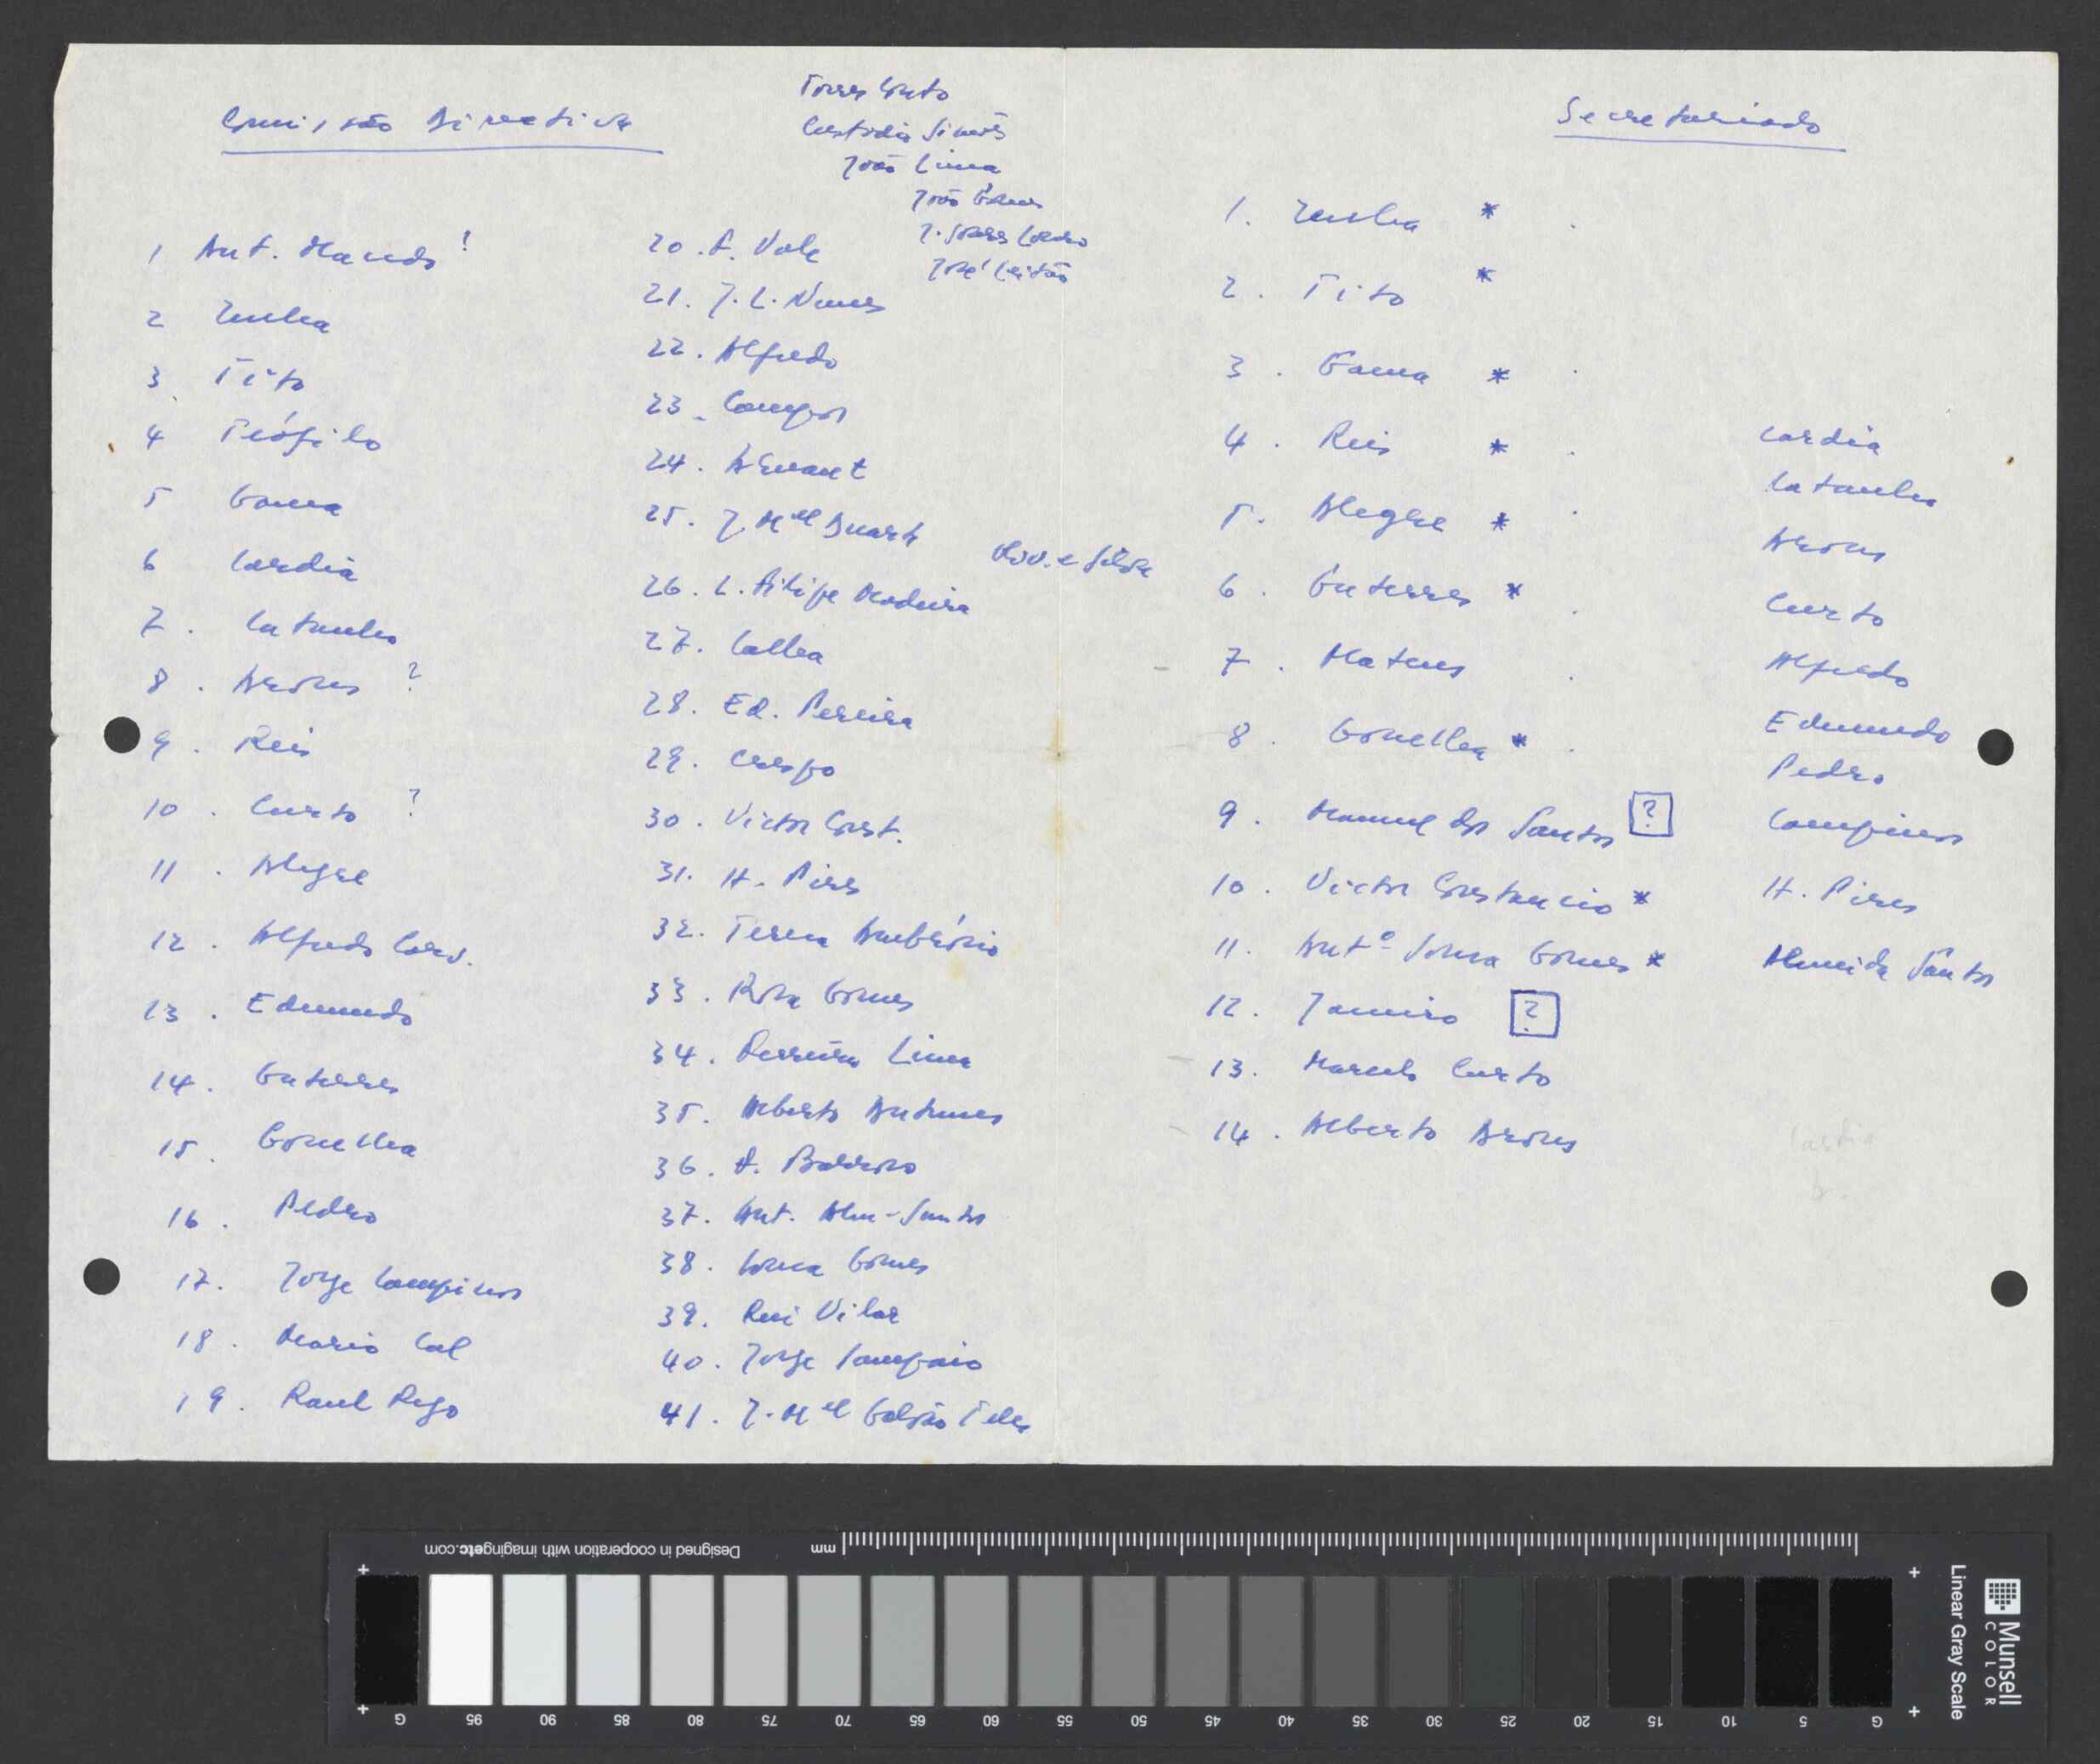 Comissão Directiva
1 Ant. Macedo !
2 Zenha
3 Tito
4 Teófilo
5 Gama
6 Cardia
7. Catanho
8. Arons ?
9. Reis
10. Curto ?
11. Alegre
12. Alfredo Carv.
13. Edmundo
14. Guterres
15. Gonelha
16. Pedro
17. Jorge Campinos
18. Mario Cal
19. Raul Rego
Torres Couto
Custodio Simões
João Lima
João Gomes
José Leitão
20. F. Vale
21. J. L. Nunes
22. Alfredo
23. Campos
24.
25. J. Mel Duarte
26. L. Filipe Madeira
27. Calha
28. Ed. Pereira
29. Crespo
30. Victor Const.
31. H. Pires
32. Teresa Ambrósio
33. Rosa Gomes
34. Ferreira Lima
35. Alberto Antunes
36. A. Barroso
37. Ant. Alm-Santos
38. Sousa Gomes
39. Rui Vilar
40. Jorge Sampaio
41. J. Mel Galvão Teles
Secretariado
1. Zenha *
2. Tito *
3. Gama *
4. Reis *
5. Alegre *
6. Guterres *
7. Mateus
8. Gonelha *
9. Manuel dos Santos ?
10. Victor Constancio *
11. Antº Sousa Gomes *
12. Janeiro ?
13. Marcelo Curto
14. Alberto Arons
Cardia
Catanho
Arons
Curto
Alfredo
Edmundo
Pedro
Campinos
H. Pires
Almeida Santos
Cardia
Designed in cooperation with imagingetc.com
mm
G 95 90 85 80 75 70 65 60 55 50 45 40 35 30 25 20 15 10 5 G
Linear Gray Scale
Munsell
COLOR